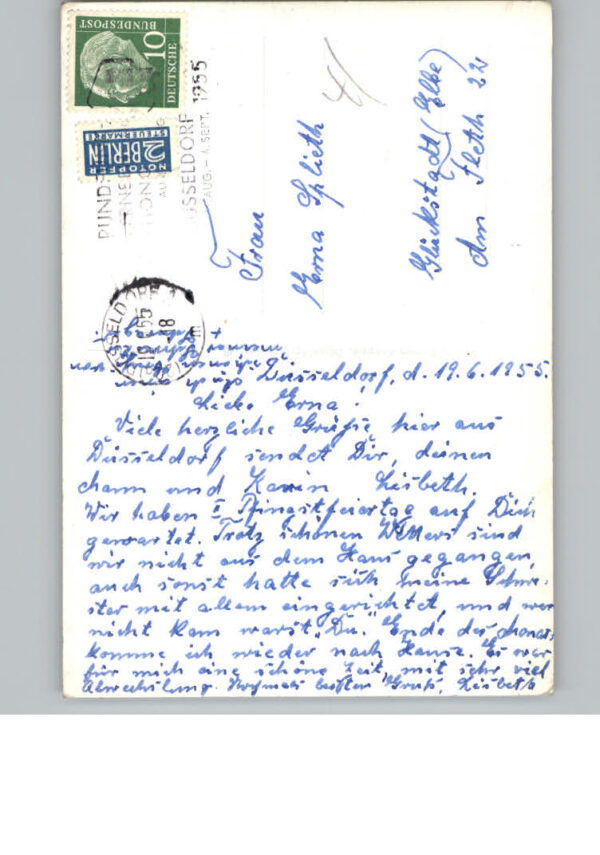 10
DEUTSCHE
BUNDESPOST
NOTOPFER
2 BERLIN
STEUERMARKE
SSELDORF 1955
AUG. – 4. SEPT.
Frau
Erna Splieth
Glückstadt (Elbe)
Am Fleth 22
Düsseldorf, d. 19.6.1955.
Liebe Erna!
Viele herzliche Grüße hier aus
Düsseldorf sendet Dir, deinen
Mann und Karin Lisbeth.
Wir haben II Pfingstfeiertag auf Dich
gewartet. Trotz schönen Wetters sind
wir nicht aus dem Haus gegangen,
auch sonst hatte sich meine Schwe-
ster mit allem eingerichtet, und wer
nicht kam warst „Du." Ende des Monats
komme ich wieder nach Hause. Es war
für mich eine schöne Zeit, mit sehr viel
Abwechslung. Nochmals besten Gruß, Lisbeth